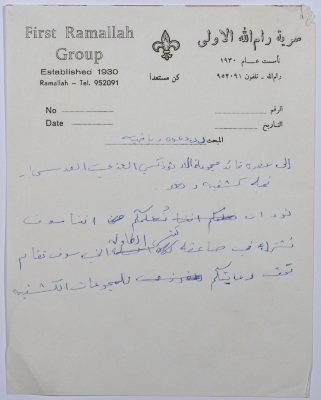 First Ramallah
Group
Established 1930
Ramallah - Tel. 952091
سرية رام الله الاولى
تأسست عام ١٩٣٠
رام الله - تلفون ٩٥٢٠٩١
كن مستعداً
No
Date
الرقم
التاريخ
المبحث دعوة رياضية
إلى حضرة قائد مجموعة الارثوذكسي العربي القدس
تحية كشفية و
نود ان نعلمكم اننا سوف
نشترك في كرة الطاولة التي سوف تقام
تحت رعايتكم للمجموعات الكشفية